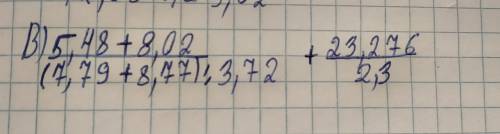 В) 5,48 + 8,02 + 23,276
(7,79 + 8,77) : 3,72 2,3